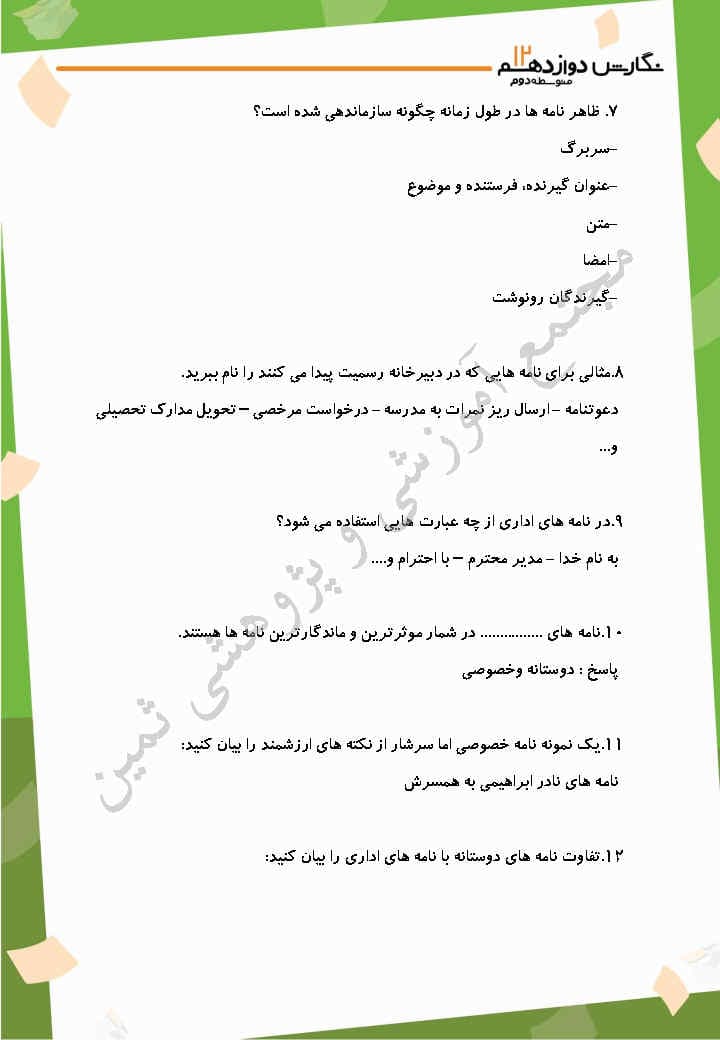 نگارش دوازدهم ۱۲
متوسطه دوم
۷. ظاهر نامه ها در طول زمانه چگونه سازماندهی شده است؟
–سربرگ
–عنوان گیرنده، فرستنده و موضوع
–متن
–امضا
–گیرندگان رونوشت
۸.مثالی برای نامه هایی که در دبیرخانه رسمیت پیدا می کنند را نام ببرید.
دعوتنامه – ارسال ریز نمرات به مدرسه – درخواست مرخصی – تحویل مدارک تحصیلی
و...
۹.در نامه های اداری از چه عبارت هایی استفاده می شود؟
به نام خدا – مدیر محترم – با احترام و....
۱۰.نامه های ................ در شمار موثرترین و ماندگارترین نامه ها هستند.
پاسخ : دوستانه وخصوصی
۱۱.یک نمونه نامه خصوصی اما سرشار از نکته های ارزشمند را بیان کنید:
نامه های نادر ابراهیمی به همسرش
۱۲.تفاوت نامه های دوستانه با نامه های اداری را بیان کنید:
مجتمع آموزشی و پژوهشی ثمین